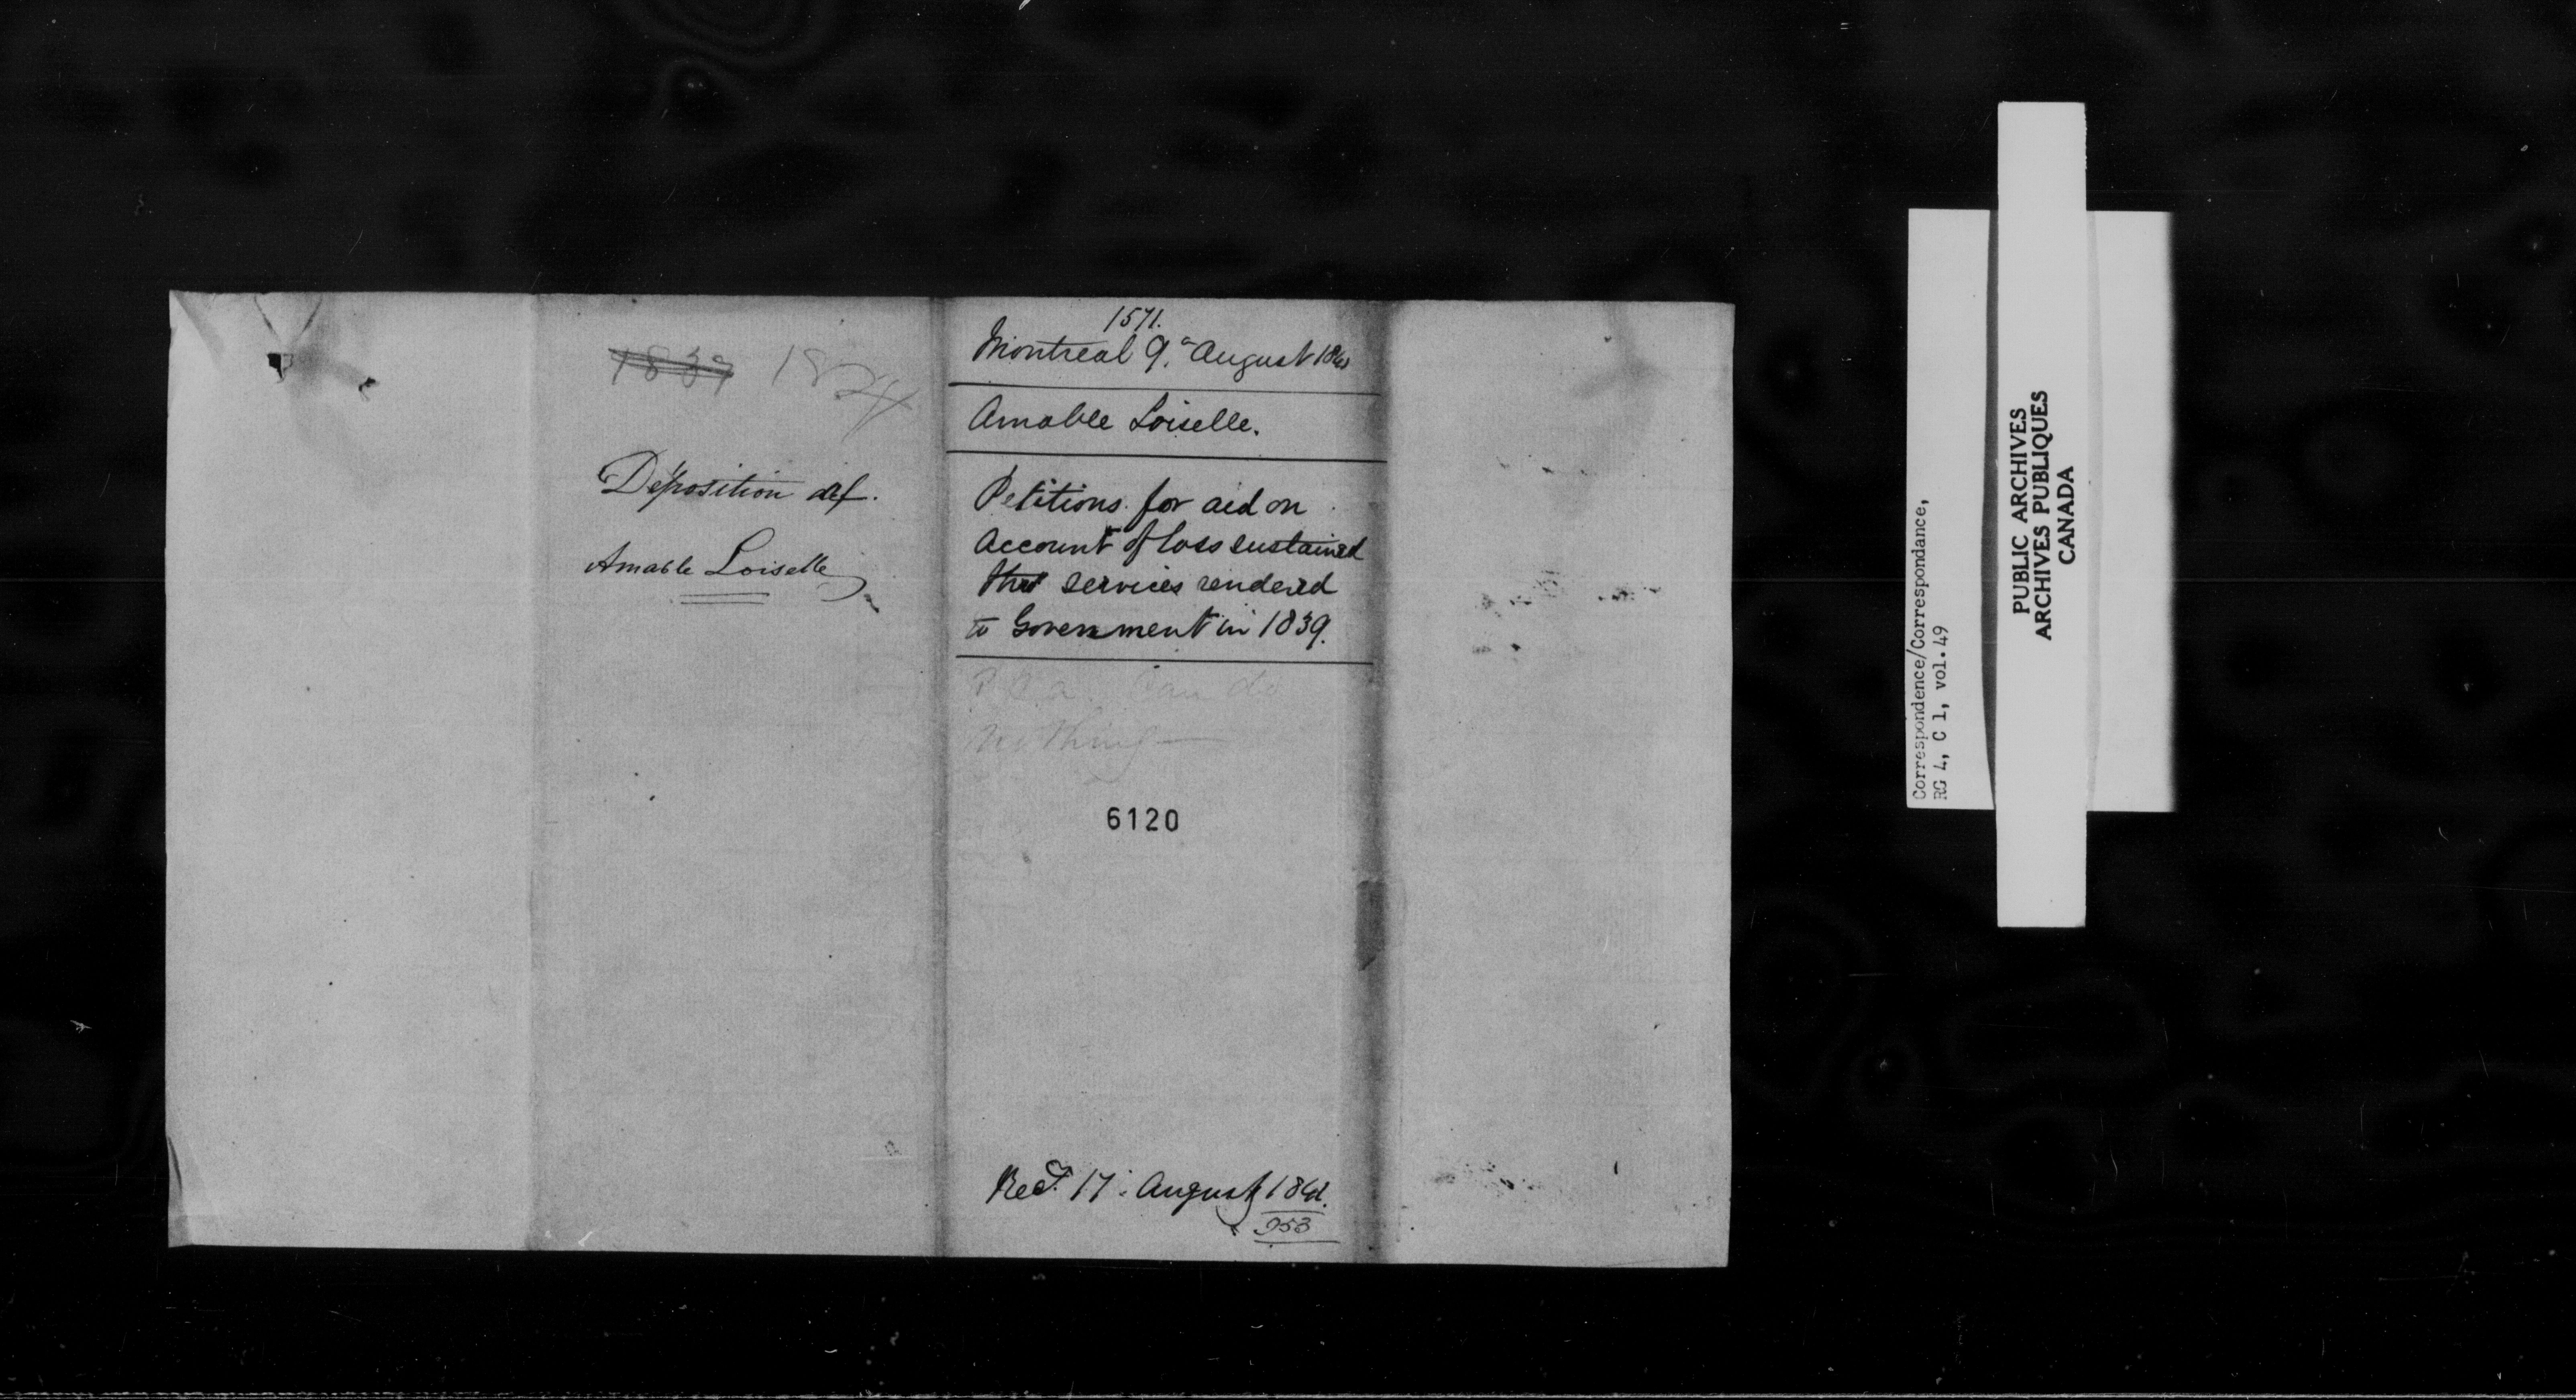 1839 182
Déposition def.
Amable Loiselle
1571.
Montreal 9. August 184
Amable Loiselle.
Petitions for aid on
Account of loss sustained
thro' services rendered
to Government in 1839.
Can do
nothing—
6120
Recd. 17. August 1841.
953
Correspondence/Correspondance,
RG 4, C 1, vol. 49
PUBLIC ARCHIVES
ARCHIVES PUBLIQUES
CANADA